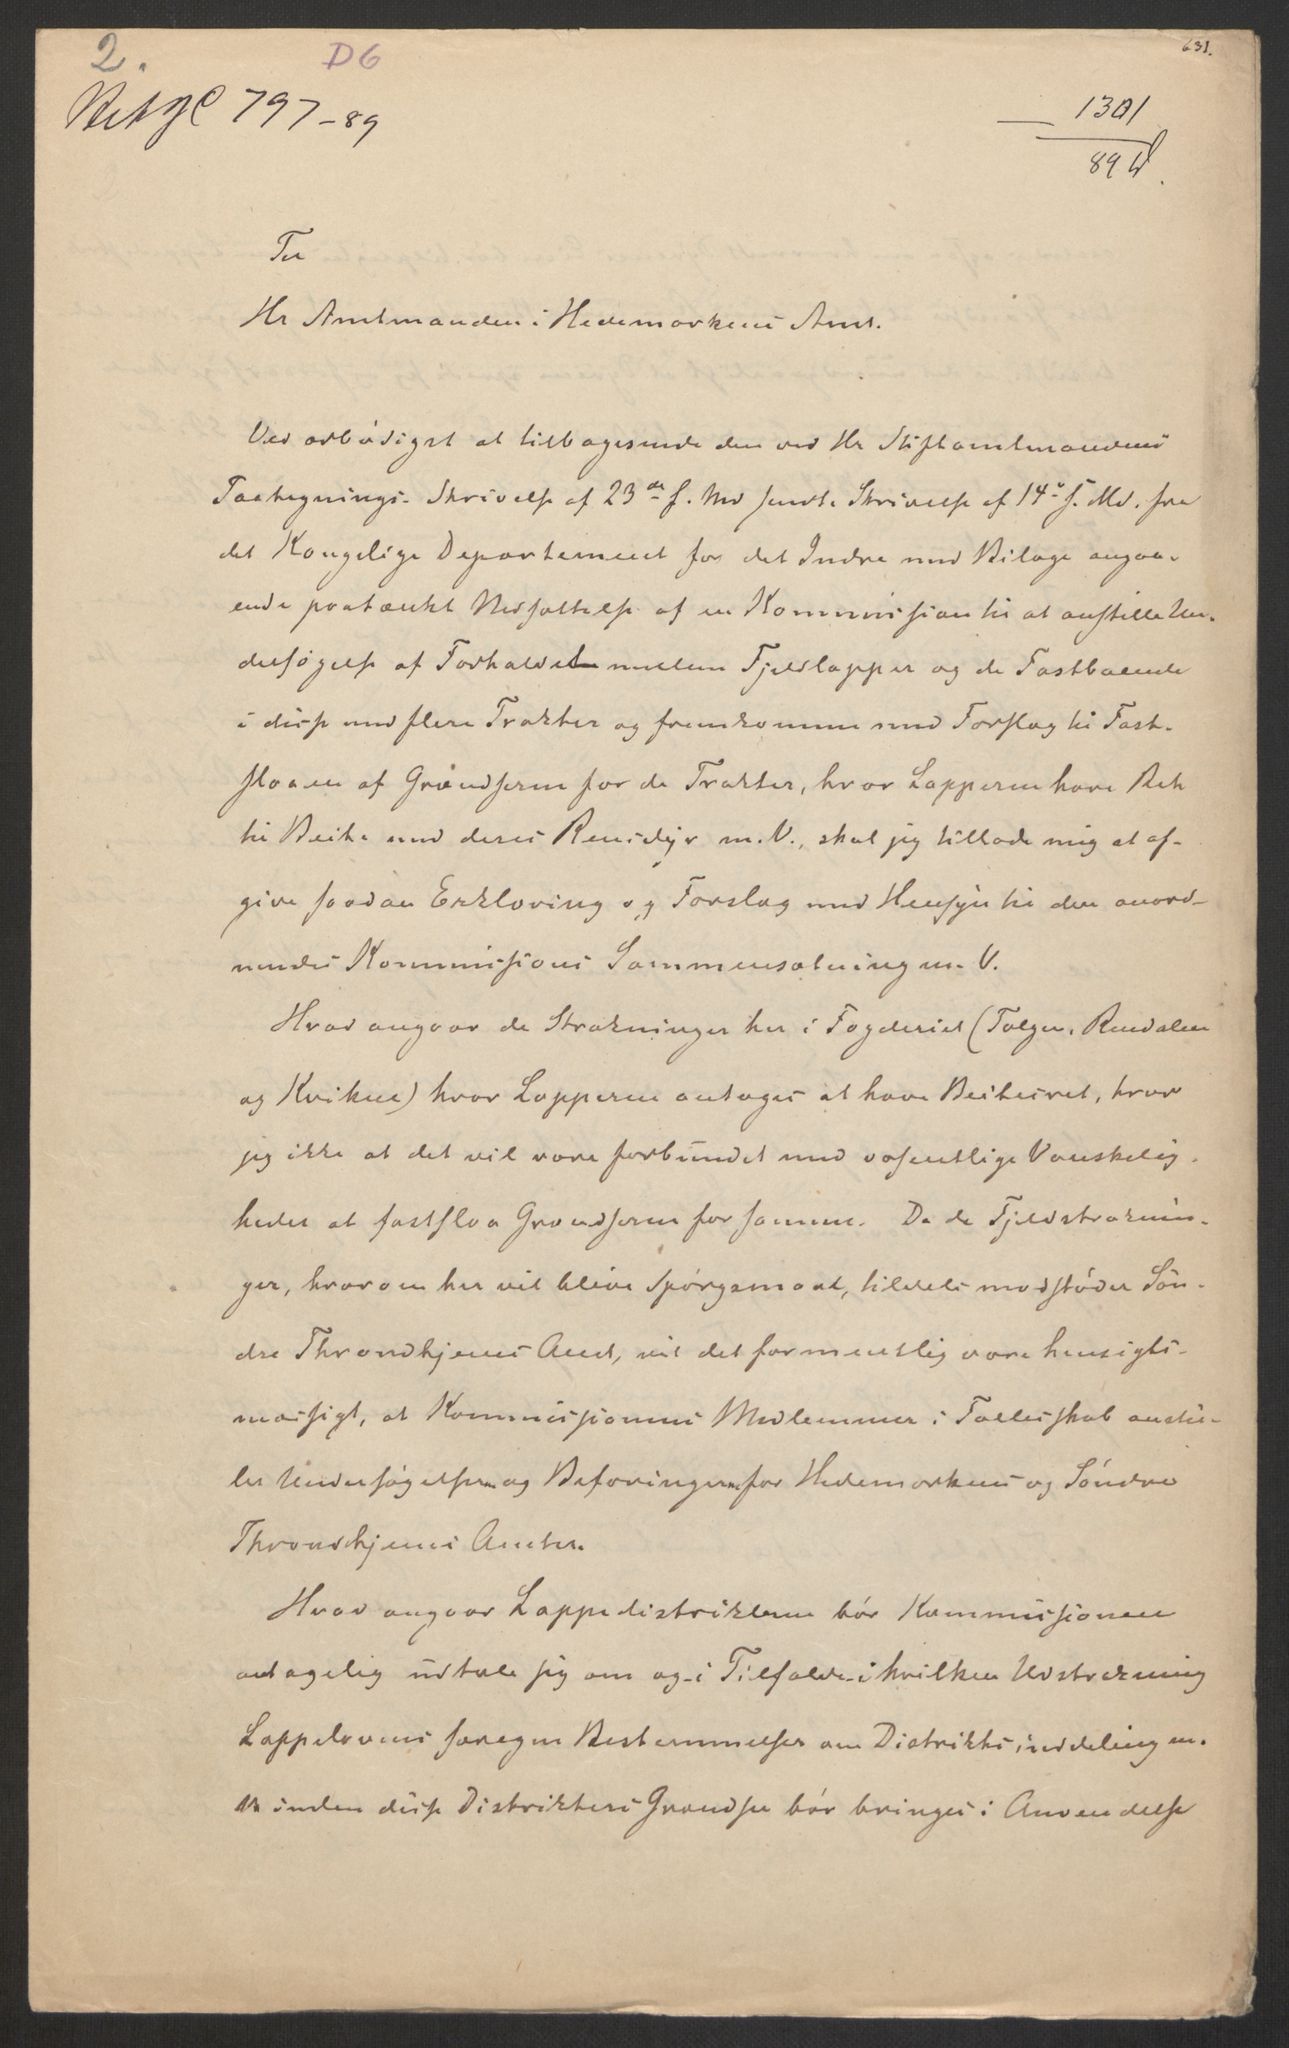 631.
2. D6
797-89
1301
89
Til
Hr Amtmanden i Hedemarkens Amt.
Ved ærbødigst at tilbagesende den ved Hr Stiftamtmandens
Paategnings-Skrivelse af 23de f. Md sendte Skrivelse af 14de f. Md. fra
det Kongelige Departement for det Indre med Bilage angaa-
ende paatænkt Nedsættelse af en Kommission til at anstille Un-
dersøgelse af Forholdet mellem Fjeldlapper og de Fastboende
i disse med flere Trakter og fremkomme med Forslag til Fast-
slaaen af Grændserne for de Trakter, hvor Lapperne have Ret
til Beite med deres Rensdyr m.V., skal jeg tillade mig at af-
give saadan Erklæring og Forslag med Hensyn til den anord-
nendes Kommissions Sammensætning m.V.
Hvad angaar de Strækninger her i Fogderiet (Tolgen, Rendalen
og Kvikne) hvor Lapperne antages at have Beitesret, tror
jeg ikke at det vil være forbundet med væsentlige Vanskelig-
heder at fastslaa Grændserne for samme. Da de Fjeldstræknin-
ger, hvorom her vil blive Spørgsmaal, tildels modstøder Søn-
dre Throndhjems Amt, vil det formentlig være hensigts-
mæssigt, at Kommissionens Medlemmer i Fællesskab anstil-
ler Undersøgelserne og Befaringerne for Hedemarkens og Søndre
Throndhjems Amter.
Hvad angaar Lappedistrikterne bør Kommissionen
antagelig udtale sig om og - i Tilfælde - i hvilken Udstrækning
Lappelovens foregne Bestemmelser om Distriktsinddeling m.
V. inden disse Distrikters Grændser bør bringes i Anvendelse